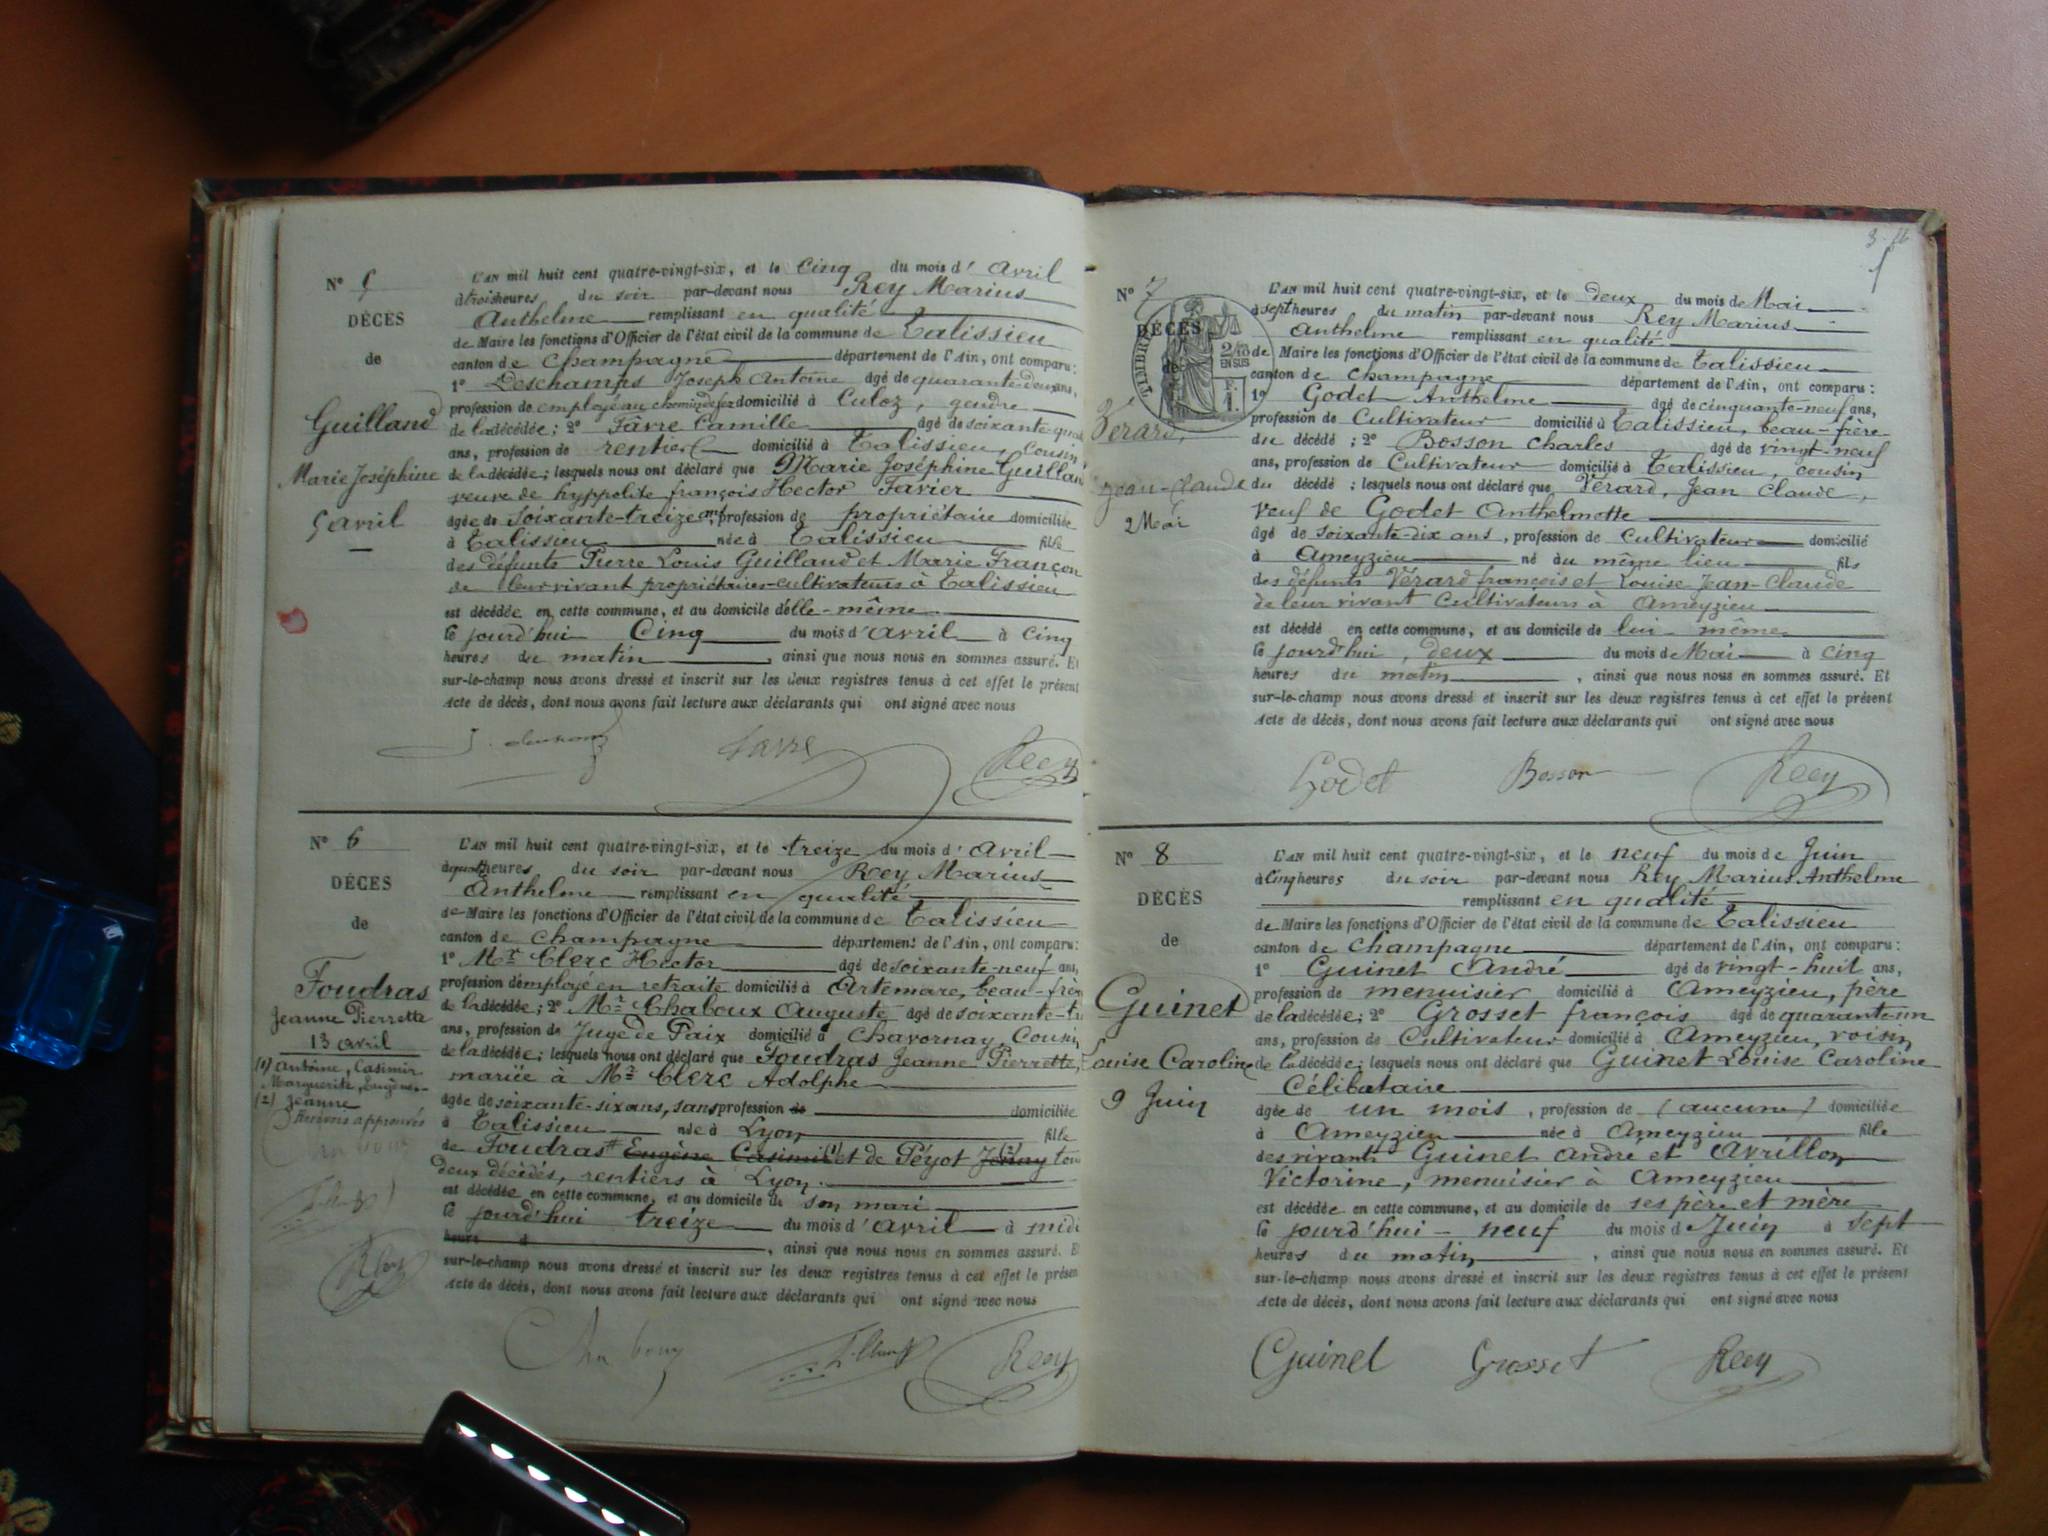 N° 5
DÉCÈS
de
Guilland
Marie Joséphine
5 avril
L'AN mil huit cent quatre-vingt-six, et le Cinq du mois d' Avril
à trois heures du soir par-devant nous Rey Marius
Anthelme remplissant en qualité
de Maire les fonctions d'Officier de l'état civil de la commune de Talissieu
canton de Champagne département de l'Ain, ont comparu :
1° Deschamps Joseph Antoine âgé de quarante-deux ans,
profession de employé au chemin de fer domicilié à Culoz, gendre
de la décédée ; 2° Favre Camille âgé de soixante-
ans, profession de rentier domicilié à Talissieu, cousin
de la décédée ; lesquels nous ont déclaré que Marie Joséphine Guillan
veuve de hyppolite françois Hector Favier
âgée de Soixante-treize ans, profession de propriétaire domiciliée
à Talissieu née à Talissieu fille
des défunts Pierre Louis Guilland et Marie Françon
de leur vivant propriétaires-cultivateurs à Talissieu
est décédée en cette commune, et au domicile d'elle-même
le jourd'hui Cinq du mois d'avril à cinq
heures du matin, ainsi que nous nous en sommes assuré. Et
sur-le-champ nous avons dressé et inscrit sur les deux registres tenus à cet effet le présent
Acte de décès, dont nous avons fait lecture aux déclarants qui ont signé avec nous
Favre Reey
N° 6
DÉCÈS
de
Foudras
Jeanne Pierrette
13 avril
(1) Antoine, Casimir
Marguerite, Eugène
(2) Jeanne
Renvois approuvés
Reey
L'AN mil huit cent quatre-vingt-six, et le treize du mois d' Avril
à quatre heures du soir par-devant nous Rey Marius
Anthelme remplissant en qualité
de Maire les fonctions d'Officier de l'état civil de la commune de Talissieu
canton de Champagne département de l'Ain, ont comparu :
1° Mr Clerc Hector âgé de soixante-neuf ans,
profession d'employé en retraite domicilié à Artemare, beau-frère
de la décédée ; 2° Mr Chaboux Auguste âgé de soixante-
ans, profession de Juge de Paix domicilié à Chavornay, Cousin
de la décédée ; lesquels nous ont déclaré que Foudras Jeanne Pierrette,
mariée à Mr Clerc Adolphe
âgée de soixante-six ans, sans profession de domiciliée
à Talissieu née à Lyon fille
de Foudras Eugène Casimir (1) et de Péyot Jenny (2) tou
deux décédés, rentiers à Lyon.
est décédée en cette commune, et au domicile de son mari
le jourd'hui treize du mois d'avril à midi
heure d , ainsi que nous nous en sommes assuré. E
sur-le-champ nous avons dressé et inscrit sur les deux registres tenus à cet effet le présen
Acte de décès, dont nous avons fait lecture aux déclarants qui ont signé avec nous
Reey
N° 7
DÉCÈS
de
TIMBRE
2/10 EN SUS
Vérard,
Jean-Claude
2 Mai
L'AN mil huit cent quatre-vingt-six, et le deux du mois de Mai
à sept heures du matin par-devant nous Rey Marius
Anthelme remplissant en qualité
de Maire les fonctions d'Officier de l'état civil de la commune de Talissieu
canton de Champagne département de l'Ain, ont comparu :
1° Godet Anthelme âgé de cinquante-neuf ans,
profession de Cultivateur domicilié à Talissieu, beau-frère
du décédé ; 2° Bosson Charles âgé de vingt-neuf
ans, profession de Cultivateur domicilié à Talissieu, cousin
du décédé ; lesquels nous ont déclaré que Vérard, Jean Claude,
veuf de Godet Anthelmette
âgé de soixante-dix ans, profession de Cultivateur domicilié
à Ameyzieu né au même lieu fils
des défunts Vérard françois et Louise Jean-Claude
de leur vivant Cultivateurs à Ameyzieu
est décédé en cette commune, et au domicile de lui-même
le jourd'hui, deux du mois de Mai à cinq
heures du matin, ainsi que nous nous en sommes assuré. Et
sur-le-champ nous avons dressé et inscrit sur les deux registres tenus à cet effet le présent
Acte de décès, dont nous avons fait lecture aux déclarants qui ont signé avec nous
Godet Bosson Reey
N° 8
DÉCÈS
de
Guinet
Louise Caroline
9 Juin
L'AN mil huit cent quatre-vingt-six, et le neuf du mois de Juin
à cinq heures du soir par-devant nous Rey Marius Anthelme
remplissant en qualité
de Maire les fonctions d'Officier de l'état civil de la commune de Talissieu
canton de Champagne département de l'Ain, ont comparu :
1° Guinet André âgé de vingt-huit ans,
profession de menuisier domicilié à Ameyzieu, père
de la décédée ; 2° Grosset françois âgé de quarante-un
ans, profession de Cultivateur domicilié à Ameyzieu, voisin
de la décédée ; lesquels nous ont déclaré que Guinet Louise Caroline
Célibataire
âgée de un mois, profession de (aucune) domiciliée
à Ameyzieu née à Ameyzieu fille
des vivants Guinet André et Avrillon
Victorine, menuisier à Ameyzieu
est décédée en cette commune, et au domicile de ses père et mère
le jourd'hui - neuf du mois de Juin à sept
heures du matin, ainsi que nous nous en sommes assuré. Et
sur-le-champ nous avons dressé et inscrit sur les deux registres tenus à cet effet le présent
Acte de décès, dont nous avons fait lecture aux déclarants qui ont signé avec nous
Guinet Grosset Reey